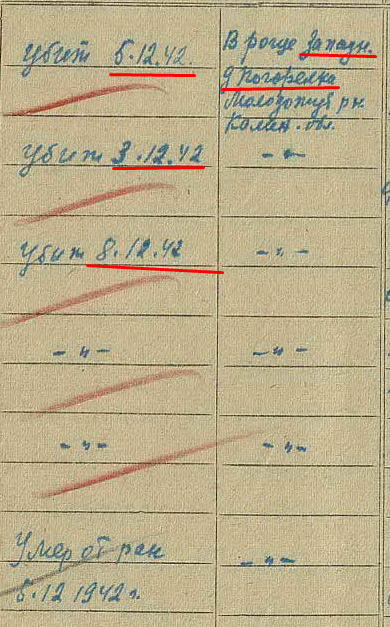 убит 5.12.42.
В роще западн.
д Погорелка
Молодотуд рн.
Калин. обл.
убит 3.12.42
-"-
убит 8.12.42
-"-
-"-
-"-
-"-
-"-
Умер от ран
5.12 1942 г.
-"-